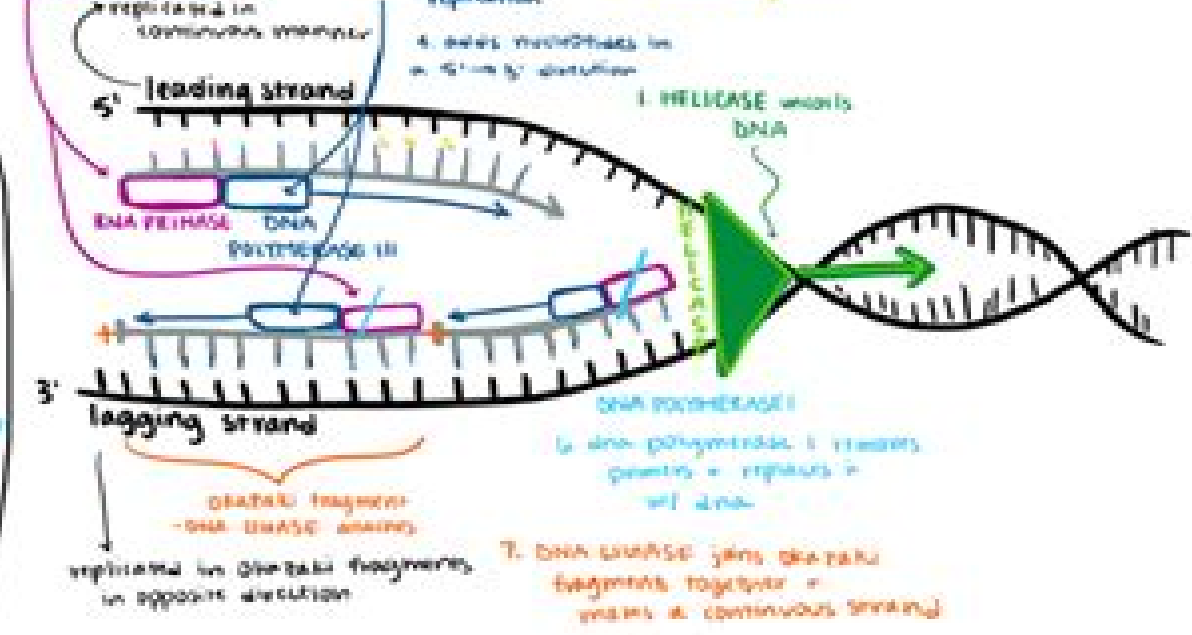 replicated in
continuous manner
replication
4. adds nucleotides in
a 5'→3' direction
leading strand
5'
1. HELICASE unzips
DNA
RNA PRIMASE
DNA
POLYMERASE III
3'
lagging strand
DNA POLYMERASE I
dna polymerase I removes
primers + replaces
w/ dna
okazaki fragment
-DNA LIGASE
replicated in okazaki fragments
in opposite direction
7. DNA LIGASE joins okazaki
fragments together +
makes a continuous strand